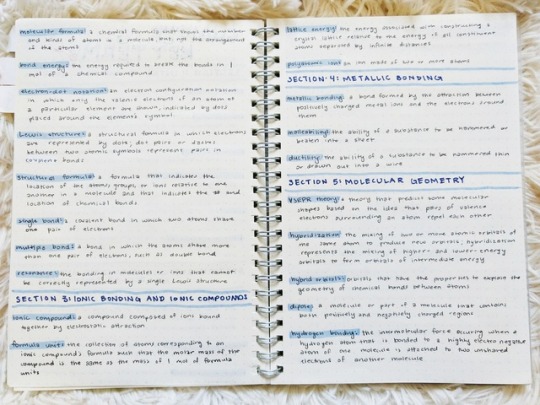 molecular formula: a chemical formula that shows the number
and kinds of atoms in a molecule, but not the arrangement
of the atoms
bond energy: the energy required to break the bonds in 1
mol of a chemical compound
electron-dot notation: an electron configuration notation
in which only the valence electrons of an atom of
a particular element are shown, indicated by dots
placed around the element's symbol
Lewis structures: a structural formula in which electrons
are represented by dots; dot pairs or dashes
between two atomic symbols represent pairs in
covalent bonds
structural formula: a formula that indicates the
location of the atoms, groups, or ions relative to one
another in a molecule and that indicates the # and
location of chemical bonds
single bond: a covalent bond in which two atoms share
one pair of electrons
multiple bonds: a bond in which the atoms share more
than one pair of electrons, such as double bond
resonance: the bonding in molecules or ions that cannot
be correctly represented by a single Lewis structure
SECTION 3: IONIC BONDING AND IONIC COMPOUNDS
ionic compounds: a compound composed of ions bound
together by electrostatic attraction
formula unit: the collection of atoms corresponding to an
ionic compound's formula such that the molar mass of the
compound is the same as the mass of 1 mol of formula
units
lattice energy: the energy associated with constructing a
crystal lattice relative to the energy of all constituent
atoms separated by infinite distances
polyatomic ion: an ion made of two or more atoms
SECTION 4: METALLIC BONDING
metallic bonding: a bond formed by the attraction between
positively charged metal ions and the electrons around
them
malleability: the ability of a substance to be hammered or
beaten into a sheet
ductility: the ability of a substance to be hammered thin
or drawn out into a wire
SECTION 5: MOLECULAR GEOMETRY
VSEPR theory: a theory that predicts some molecular
shapes based on the idea that pairs of valence
electrons surrounding an atom repel each other
hybridization: the mixing of two or more atomic orbitals of
the same atom to produce new orbitals; hybridization
represents the mixing of higher- and lower-energy
orbitals to form orbitals of intermediate energy
hybrid orbitals: orbitals that have the properties to explain the
geometry of chemical bonds between atoms
dipole: a molecule or part of a molecule that contains
both positively and negatively charged regions
hydrogen bonding: the intermolecular force occuring when a
hydrogen atom that is bonded to a highly electronegative
atom of one molecule is attracted to two unshared
electrons of another molecule